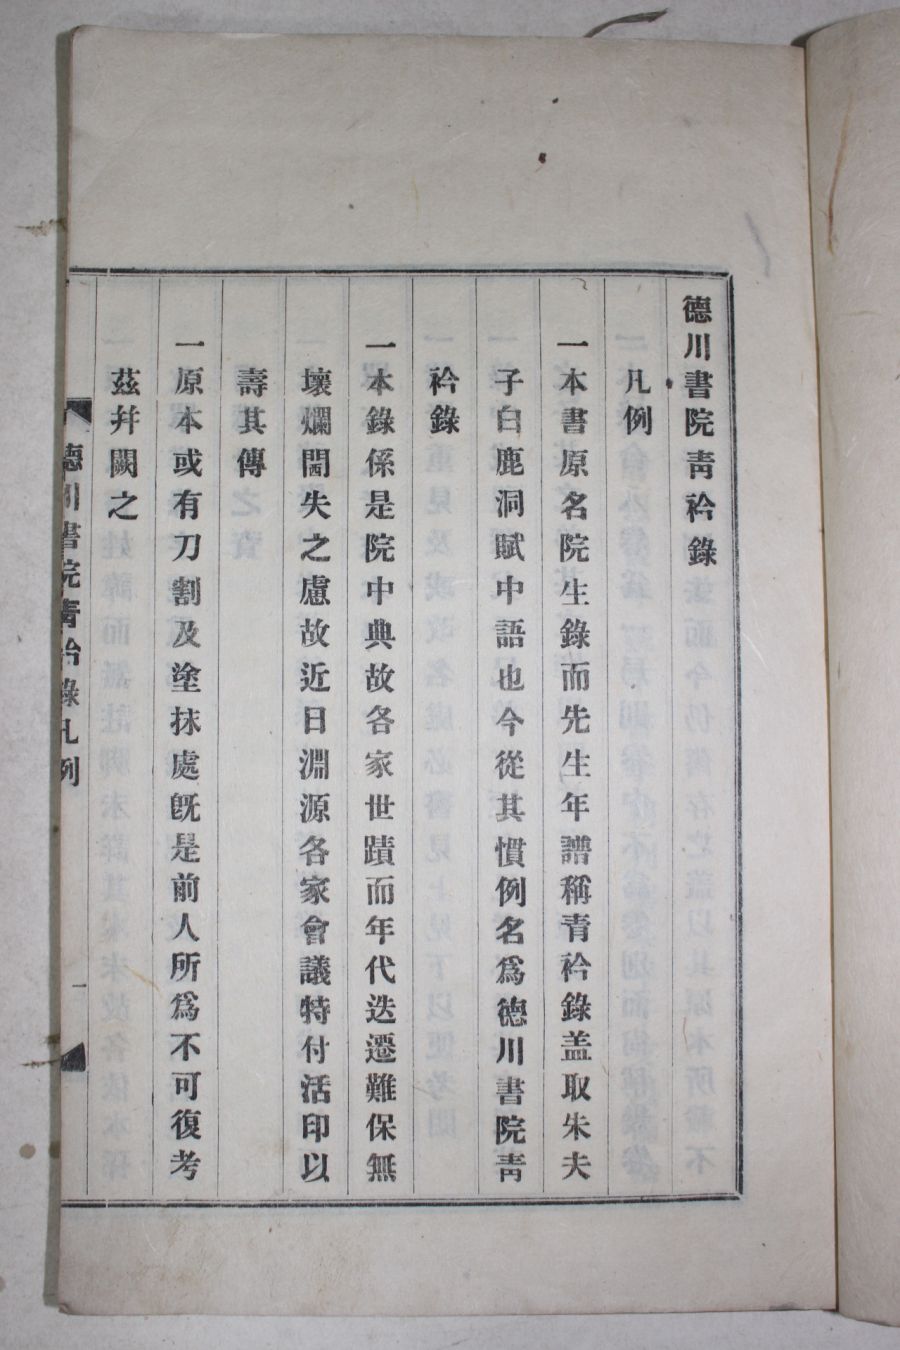 德川書院靑衿錄
凡例
一本書原名院生錄而先生年譜稱青衿錄盖取朱夫
子白鹿洞賦中語也今從其慣例名爲德川書院靑
衿錄
一本錄係是院中典故各家世蹟而年代迭遷難保無
壞爛閪失之慮故近日淵源各家會議特付活印以
壽其傳
一原本或有刀割及塗抹處旣是前人所爲不可復考
茲幷闕之
德川書院靑衿錄凡例
一